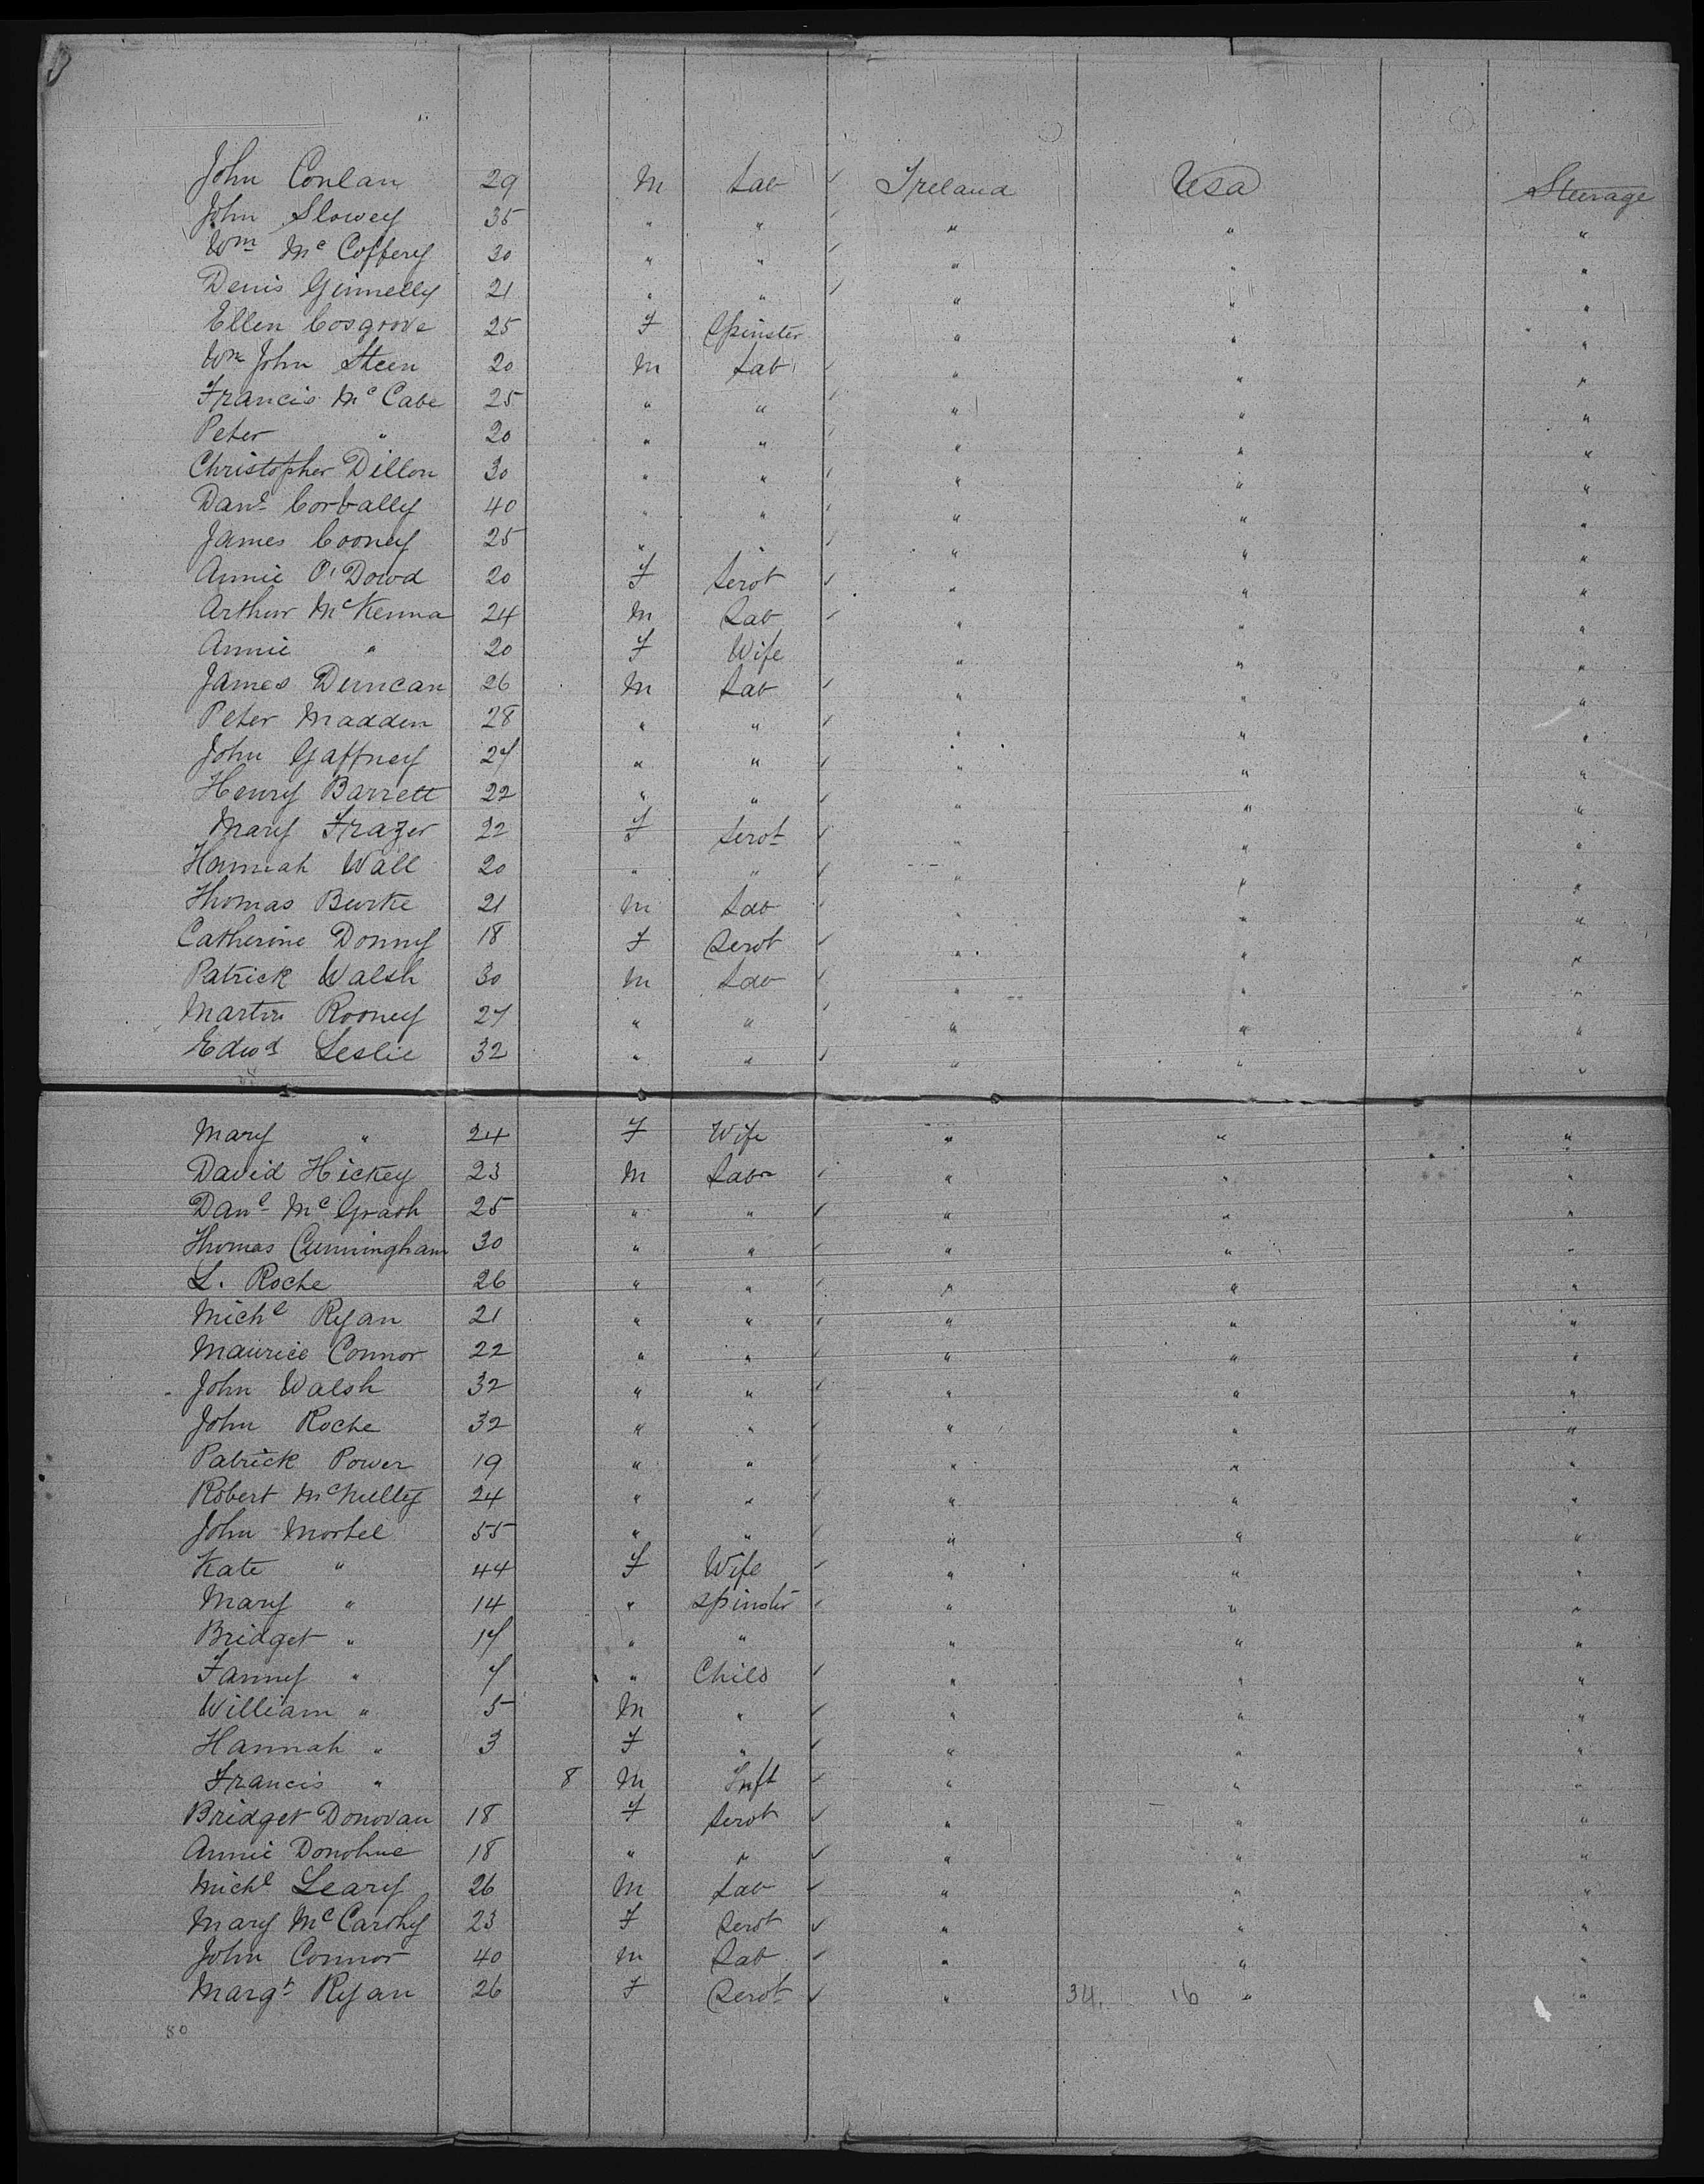 John Conlan 29 M Lab ✓ Ireland Usa Steerage
John Slowey 35 " " ✓ " " "
Wm Mc Coffery 30 " " ✓ " " "
Denis Ginnelly 21 " " ✓ " " "
Ellen Cosgrove 25 F Spinster " " "
Wm John Steen 20 M Lab ✓ " " "
Francis Mc Cabe 25 " " ✓ " " "
Peter " 20 " " ✓ " " "
Christopher Dillon 30 " " ✓ " " "
Danl Corbally 40 " " ✓ " " "
James Cooney 25 " " ✓ " " "
Annie O'Dowd 20 F Servt ✓ " " "
Arthur McKenna 24 M Lab ✓ " " "
Annie " 20 F Wife " " "
James Duncan 26 M Lab ✓ " " "
Peter Madden 28 " " ✓ " " "
John Gaffney 27 " " ✓ " " "
Henry Barrett 22 " " ✓ " " "
Mary Frazer 22 F Servt ✓ " " "
Hannah Wall 20 " " ✓ " " "
Thomas Burke 21 M Lab ✓ " " "
Catherine Donny 18 F Servt ✓ " " "
Patrick Walsh 30 M Lab ✓ " " "
Martin Rooney 27 " " ✓ " " "
Edwd Leslie 32 " " ✓ " " "
Mary " 24 F Wife " " "
David Hickey 23 M Labr ✓ " " "
Danl McGrath 25 " " ✓ " " "
Thomas Cunningham 30 " " ✓ " " "
L. Roche 26 " " ✓ " " "
Michl Ryan 21 " " ✓ " " "
Maurice Connor 22 " " ✓ " " "
John Walsh 32 " " ✓ " " "
John Roche 32 " " ✓ " " "
Patrick Power 19 " " ✓ " " "
Robert McNulty 24 " " ✓ " " "
John Mortel 55 " " ✓ " " "
Kate " 44 F Wife ✓ " " "
Mary " 14 " Spinster ✓ " " "
Bridget " 17 " " " " "
Fanny " 7 " Child ✓ " " "
William " 5 M " ✓ " " "
Hannah " 3 F " ✓ " " "
Francis " 8 M Inft ✓ " " "
Bridget Donovan 18 F Servt ✓ " " "
Annie Donohue 18 " " ✓ " " "
Michl Leary 26 M Lab ✓ " " "
Mary McCarthy 23 F Servt ✓ " " "
John Connor 40 M Lab ✓ " " "
Margt Ryan 26 F Servt ✓ " 34. 16 " "
50